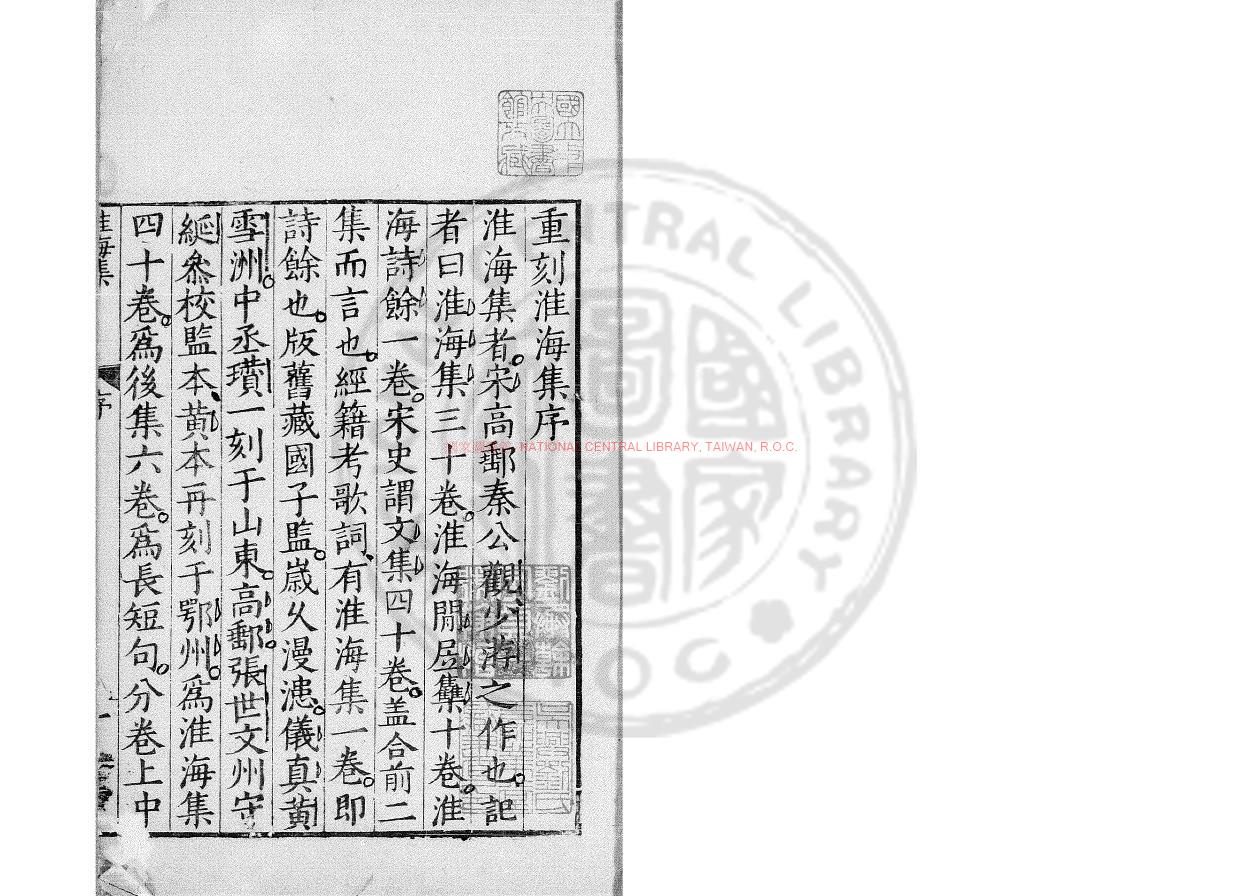 重刻淮海集序
淮海集者宋高郵秦公觀少游之作也記
者曰淮海集三十卷淮海閒居集十卷淮
海詩餘一卷宋史謂文集四十卷盖合前二
集而言也經籍考歌詞有淮海集一卷即
詩餘也版舊藏國子監歲久漫漶儀真黄
雪洲中丞瓚一刻于山東高郵張世文州守
綖叅校監本黄本再刻于鄂州爲淮海集
四十卷爲後集六卷爲長短句分卷上中
淮海集
序
一
NATIONAL CENTRAL LIBRARY, TAIWAN, R.O.C.
CENTRAL LIBRARY
ROC
國家圖書